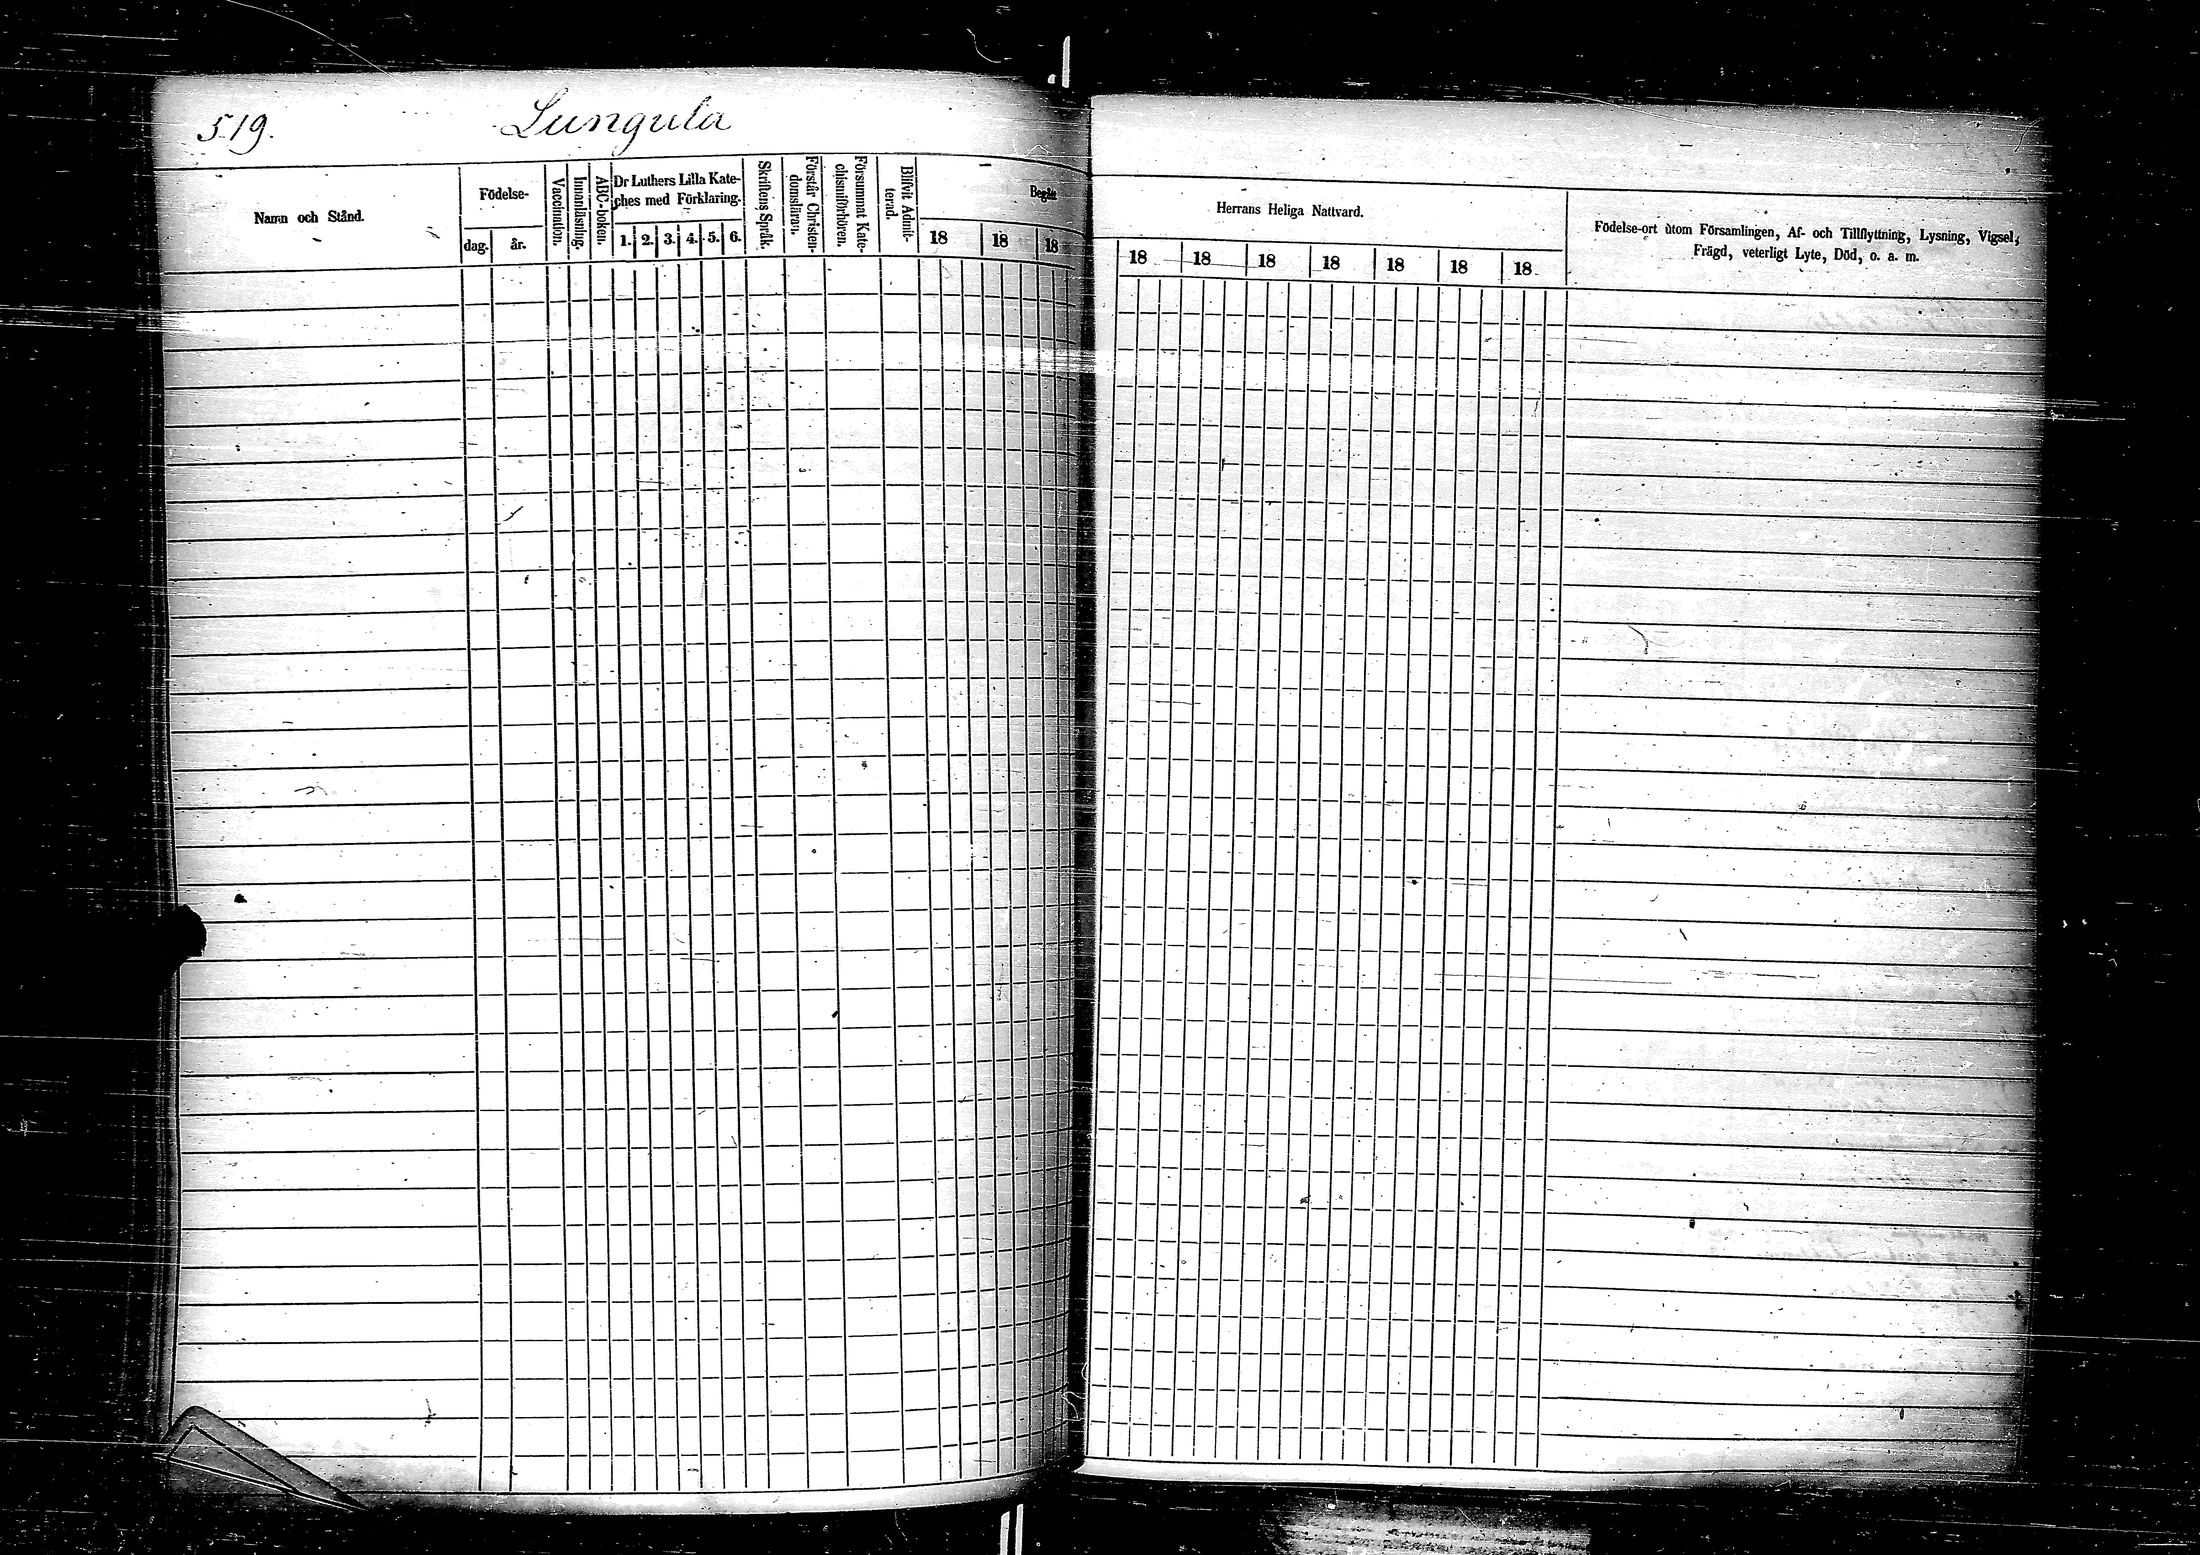 519.
Lungula
Namn och Stånd.
Födelse-
dag.
år.
Vaccination.
Innanläsning.
ABC-boken.
Dr Luthers Lilla Kate-
ches med Förklaring.
1. 2. 3. 4. 5. 6.
Skriftens Språk.
Förstår Christen-
domsläran.
Försummat Kate-
chismiförhören.
Blifvit Admit-
terad.
Begått
18 18 18
Herrans Heliga Nattvard.
18 18 18 18 18 18 18
Födelse-ort utom Församlingen, Af- och Tillflyttning, Lysning, Vigsel,
Frägd, veterligt Lyte, Död, o. a. m.